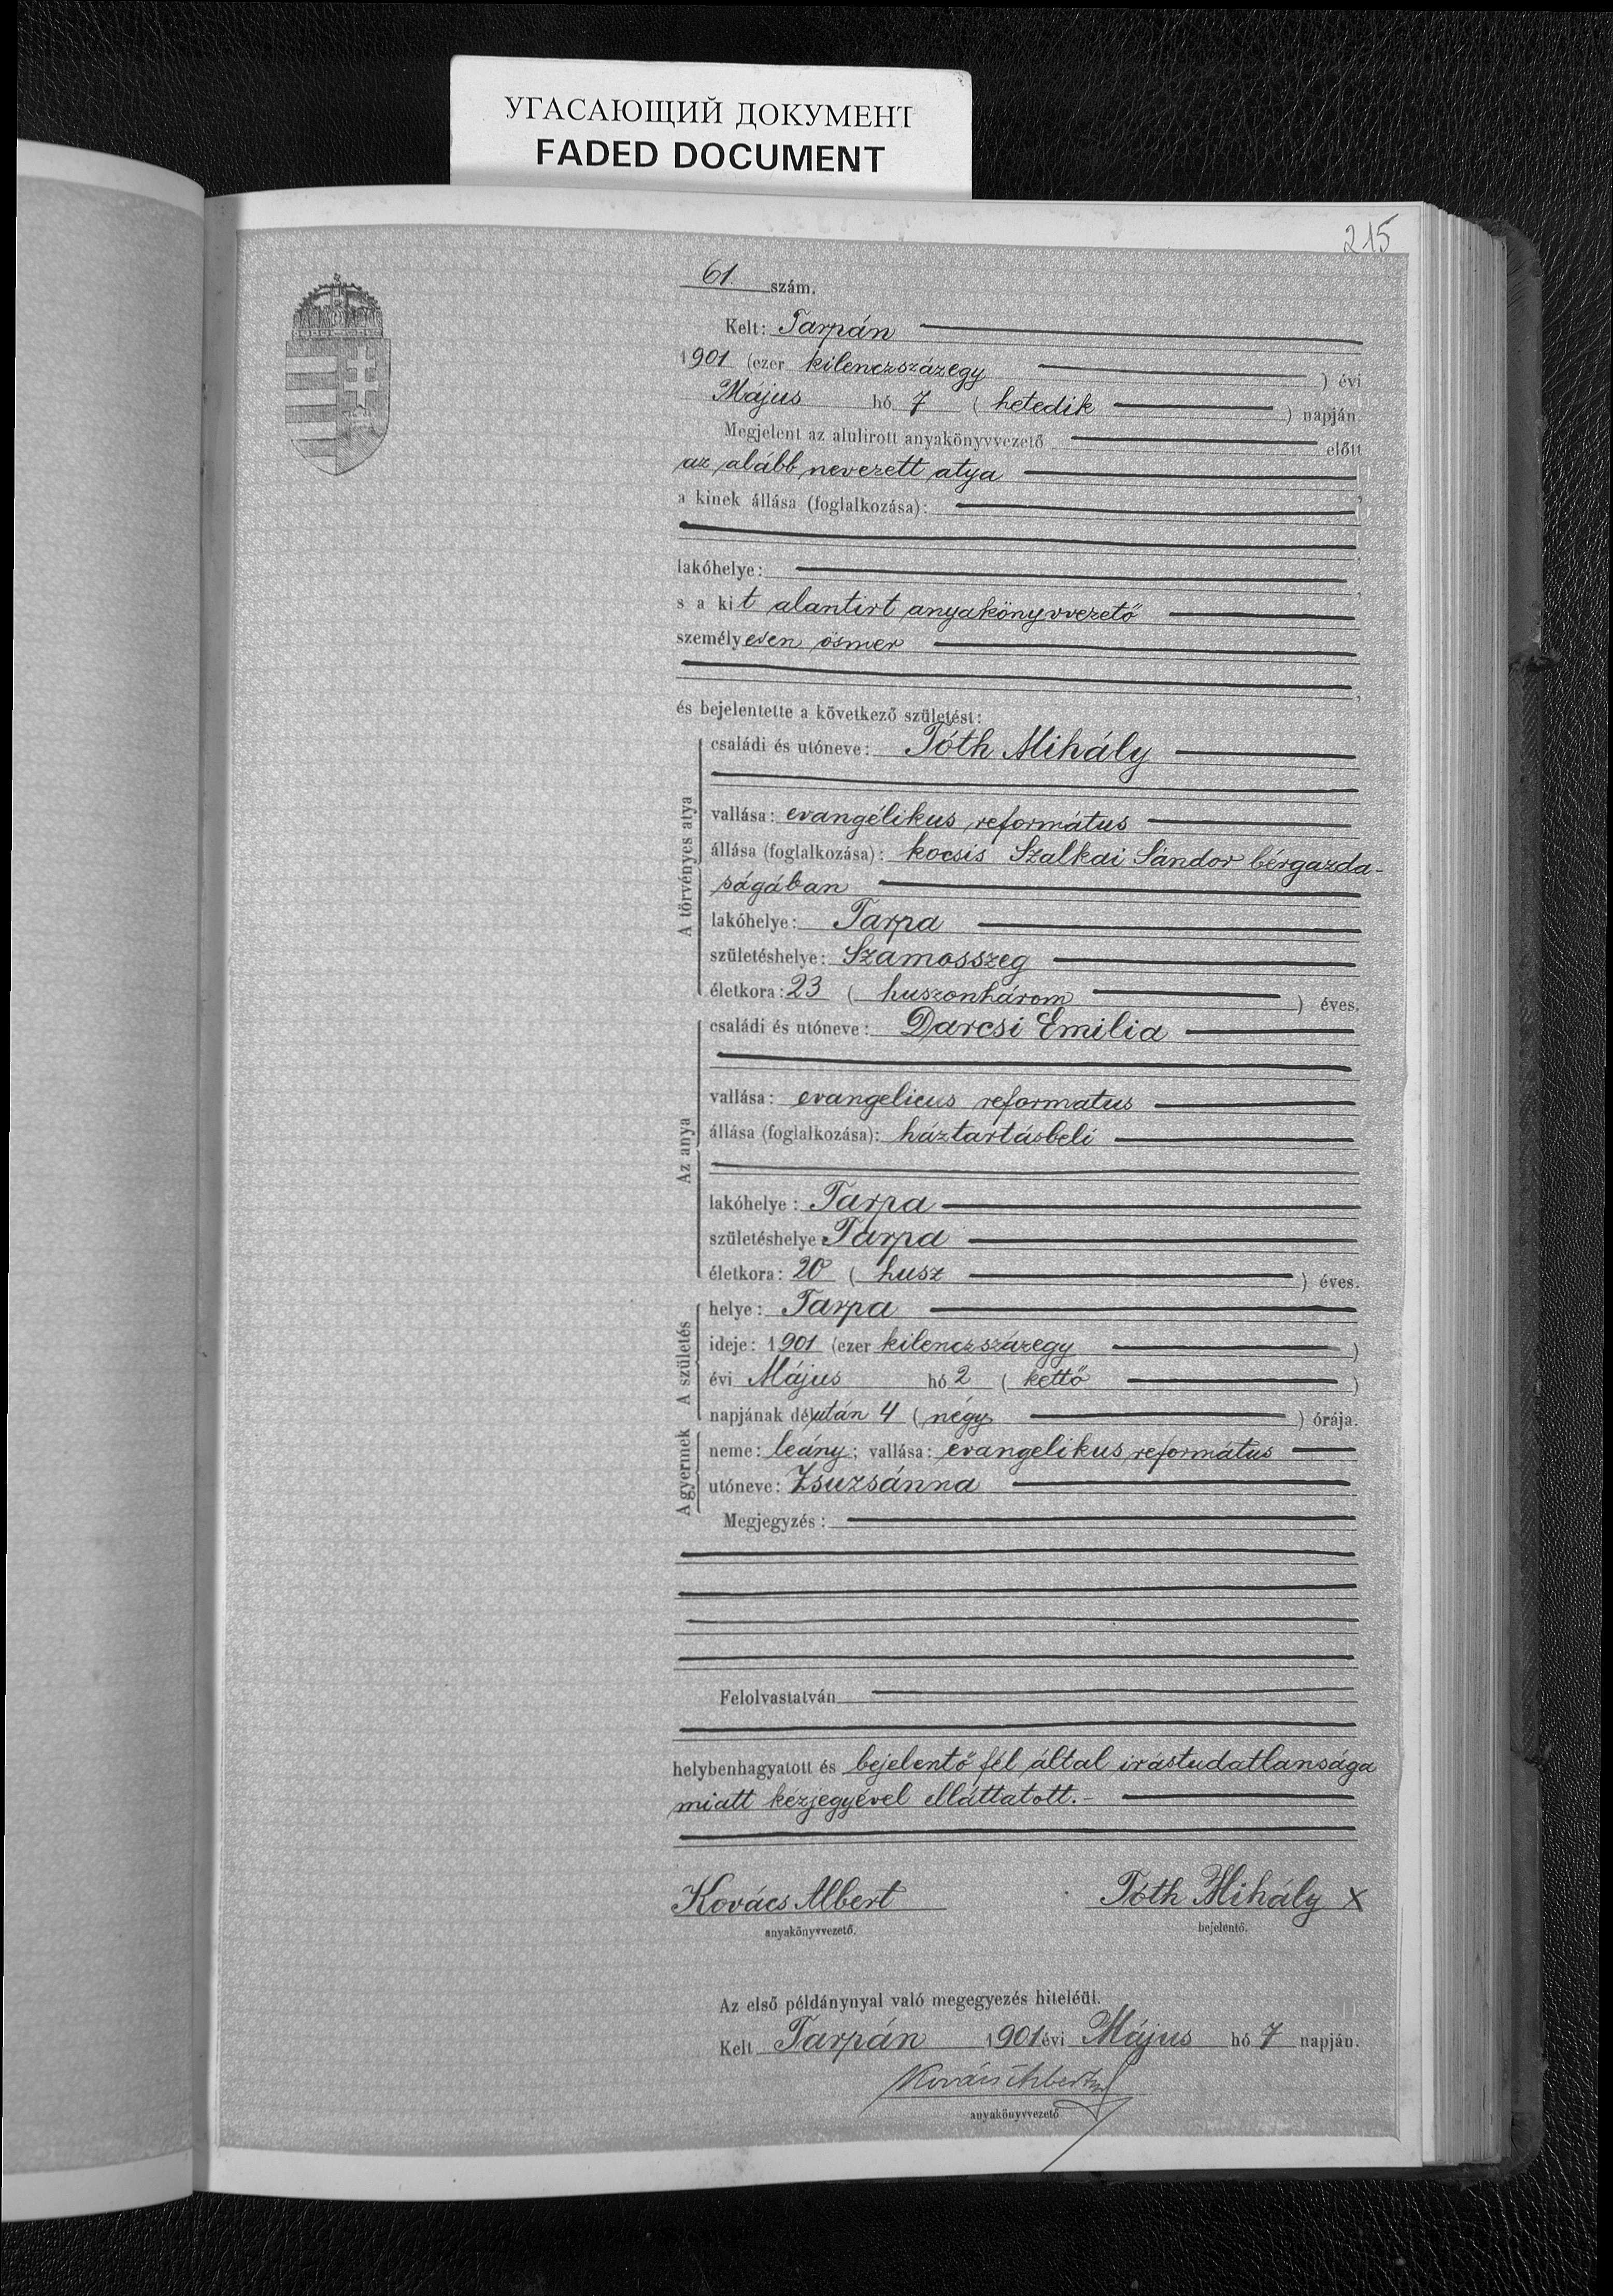 УГАСАЮЩИЙ ДОКУМЕНТ
FADED DOCUMENT
215
61. szám.
Kelt: Tarpán
1901 (ezer kilenczszázegy ) évi
Május hó 7 ( hetedik ) napján.
Megjelent az alulirott anyakönyvvezető előtt
az alább nevezett atya ,
a kinek állása (foglalkozása):
lakóhelye: ,
s a kit alantirt anyakönyvvezető
személyesen ösmer
,
és bejelentette a következő születést:
A törvényes atya
családi és utóneve: Tóth Mihály
vallása: evangélikus református
állása (foglalkozása): kocsis Szalkai Sándor bérgazda-
ságában
lakóhelye: Tarpa
születéshelye: Szamosszeg
életkora: 23 ( huszonhárom ) éves.
Az anya
családi és utóneve: Darcsi Emilia
vallása: evangelicus reformatus
állása (foglalkozása): háztartásbeli
lakóhelye: Tarpa
születéshelye: Tarpa
életkora: 20 ( husz ) éves.
A születés
helye: Tarpa
ideje: 1901 (ezer kilenczszázegy )
évi Május hó 2 ( kettő )
napjának délután 4 ( négy ) órája.
A gyermek
neme: leány; vallása: evangelikus református
utóneve: Zsuzsánna
Megjegyzés:
Felolvastatván
helybenhagyatott és bejelentő fél által irástudatlansága
miatt kézjegyével elláttatott.-
Kovács Albert Tóth Mihály X
anyakönyvvezető. bejelentő.
Az első példánynyal való megegyezés hiteléül.
Kelt Tarpán 1901 évi Május hó 7 napján.
Kovács Albert
anyakönyvvezető